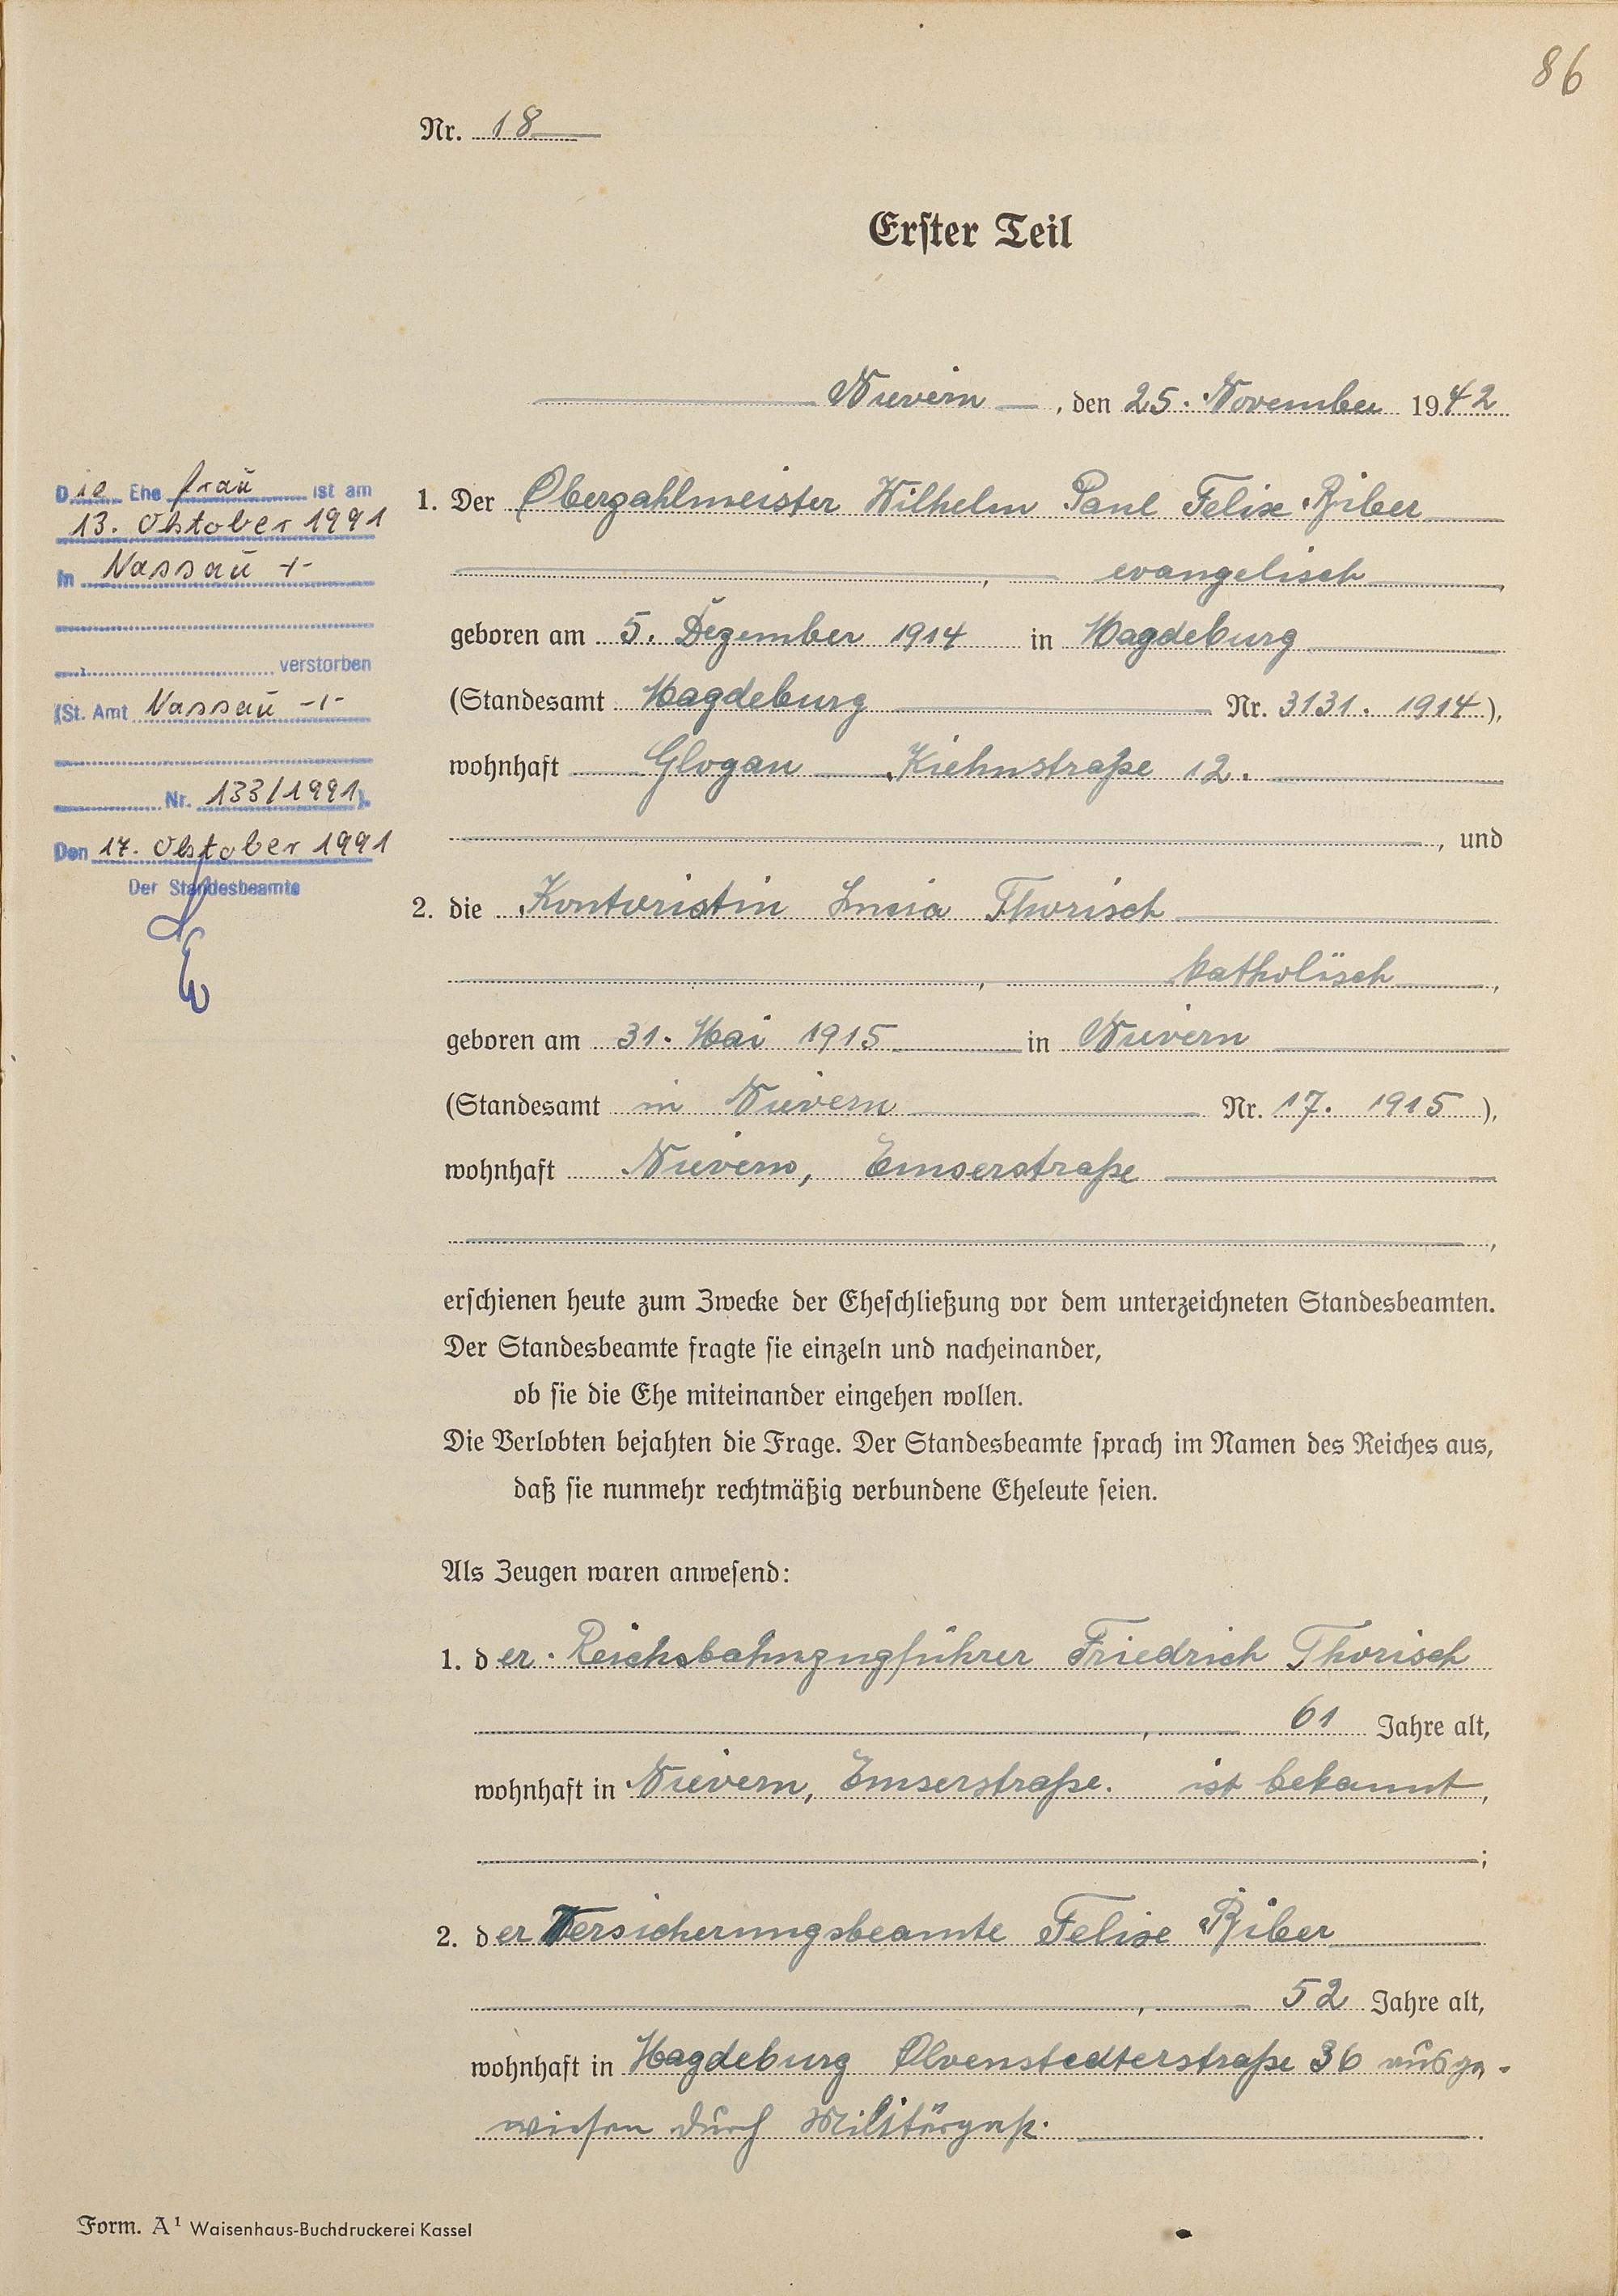 86
Nr. 18
Erster Teil
Nievern, den 25. November 1942
Die Ehe frau ist am
13. Oktober 1991
in Nassau -/-
verstorben
(St. Amt Nassau -/-
Nr. 133/1991).
Den 17. Oktober 1991
Der Standesbeamte
1. Der Oberzahlmeister Wilhelm Paul Felix Riber
, evangelisch,
geboren am 5. Dezember 1914 in Magdeburg
(Standesamt Magdeburg Nr. 3131. 1914),
wohnhaft Glogau Kiehnstraße 12.
, und
2. die Kontoristin Lucia Thorisch
, katholisch,
geboren am 31. Mai 1915 in Nievern
(Standesamt in Nievern Nr. 17. 1915),
wohnhaft Nievern, Emserstraße
,
erschienen heute zum Zwecke der Eheschließung vor dem unterzeichneten Standesbeamten.
Der Standesbeamte fragte sie einzeln und nacheinander,
ob sie die Ehe miteinander eingehen wollen.
Die Verlobten bejahten die Frage. Der Standesbeamte sprach im Namen des Reiches aus,
daß sie nunmehr rechtmäßig verbundene Eheleute seien.
Als Zeugen waren anwesend:
1. der Reichsbahnzugführer Friedrich Thorisch
, 61 Jahre alt,
wohnhaft in Nievern, Emserstraße. ist bekannt,
;
2. der Versicherungsbeamte Felix Riber
, 52 Jahre alt,
wohnhaft in Magdeburg Olvenstedterstraße 36 ausge-
wiesen durch Militärpaß.
Form. A¹ Waisenhaus-Buchdruckerei Kassel